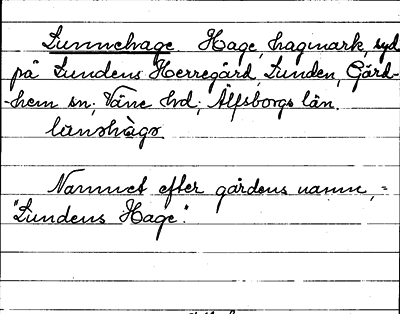 Lunnehage. Hage, hagmark, syd
på Lundens Herregård, Lunden, Gärd-
-hem sn; Väne hd; Älfsborgs län.
lunnhàgə.
Namnet efter gårdens namn, =
"Lundens Hage".